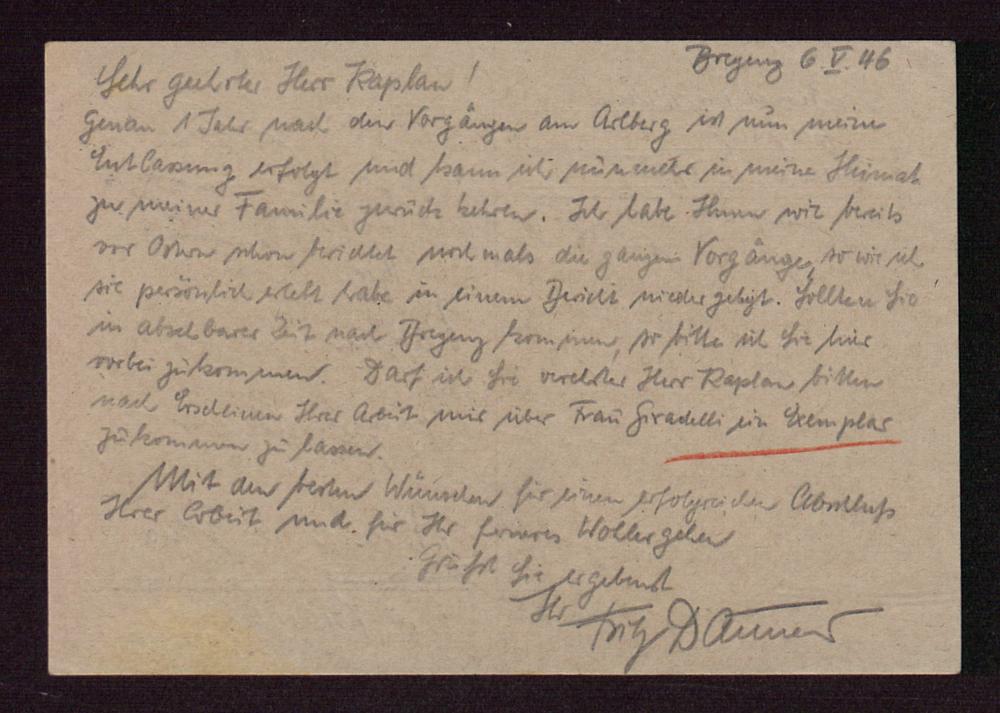 Bregenz 6 V. 46
Sehr geehrter Herr Kaplan!
Genau 1 Jahr nach den Vorgängen am Arlberg ist nun meine
Entlassung erfolgt und kann ich nunmehr in meine Heimat
zu meiner Familie zurück kehren. Ich habe Ihnen wie bereits
vor Ostern schon berichtet nochmals die ganzen Vorgänge, so wie ich
sie persönlich erlebt habe in einem Bericht niedergelegt. Sollten Sie
in absehbarer Zeit nach Bregenz kommen, so bitte ich Sie hier
vorbei zukommen. Darf ich Sie verehrter Herr Kaplan bitten
nach Erscheinen Ihrer Arbeit mir über Frau Giradelli ein Exemplar
zukommen zu lassen.
Mit den besten Wünschen für einen erfolgreichen Abschluß
Ihrer Arbeit und für Ihr ferneres Wohlergehen
Grüßt Sie ergebenst
Ihr Fritz